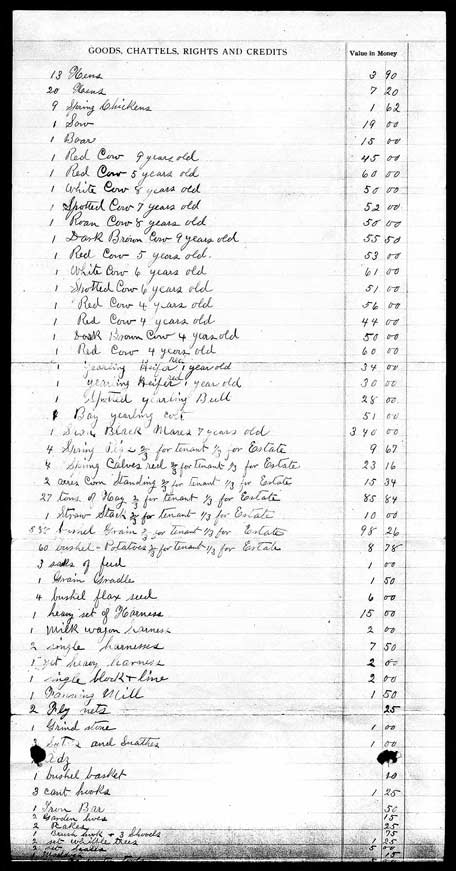 GOODS, CHATTELS, RIGHTS AND CREDITS Value in Money
13 Hens 3 90
20 Hens 7 20
9 Spring Chickens 1 62
1 Sow 19 00
1 Boar 15 00
1 Red Cow 9 years old 45 00
1 Red Cow 5 years old 60 00
1 White Cow 8 years old 50 00
1 Spotted Cow 7 years old 52 00
1 Roan Cow 8 years old 50 00
1 Dark Brown Cow 9 years old 55 50
1 Red Cow 5 years old. 53 00
1 White Cow 6 years old 61 00
1 Spotted Cow 6 years old 51 00
1 Red Cow 4 years old 56 00
1 Red Cow 4 years old 44 00
1 Dark Brown Cow 4 years old 50 00
1 Red Cow 4 years old 60 00
1 yearling Heifer Red 1 year old 34 00
1 yearling Heifer red 1 year old 30 00
1 Spotted yearling Bull 28 00
1 Bay yearling colt 51 00
1 Black Mares 7 years old 340 00
4 Spring Pigs 2/3 for tenant 1/3 for Estate 9 67
4 Spring Calves red 2/3 for tenant 1/3 for Estate 23 16
2 acres Corn Standing 2/3 for tenant 1/3 for Estate 15 34
27 tons of Hay 2/3 for tenant 1/3 for Estate 85 84
1 Straw Stack 2/3 for tenant 1/3 for Estate 10 00
bushel Grain 2/3 for tenant 1/3 for Estate 98 26
60 bushel Potatoes 2/3 for tenant 1/3 for Estate 8 78
3 sacks of feed 1 00
1 Grain Cradle 1 50
4 bushel flax seed 6 00
1 heavy set of Harness 15 00
1 Milk wagon harness 2 00
2 single harnesses 7 50
1 set heavy harness 2 00
1 single block + line 2 00
1 Fanning Mill 1 50
2 Fly nets 25
1 Grind stone 1 00
2 and Snathes 1 00
Adz
1 bushel basket 10
3 cant hooks 1 25
1 Iron Bar 50
2 Garden hoes 15
2 Rakes 25
1 Brush hook + 3 Shovels 75
2 set whibble trees 1 25
2 5 00
1 15